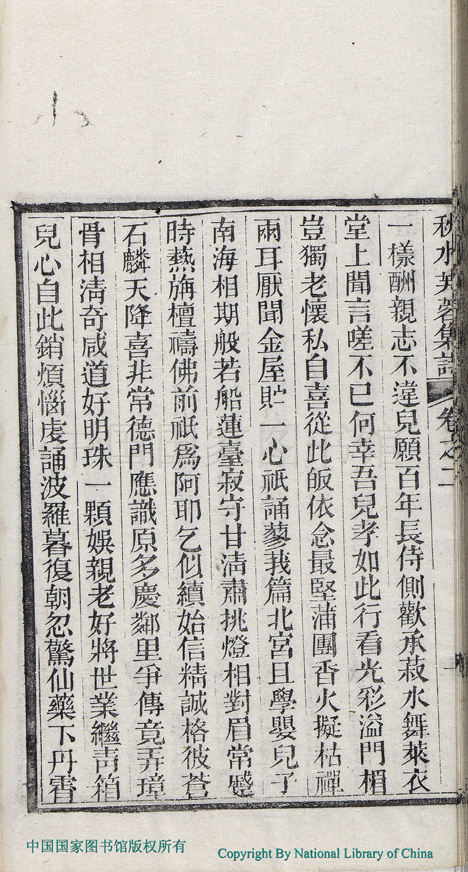 秋水芙蓉集詩 卷之二
一樣酬親志不違兒願百年長侍側歡承菽水舞萊衣
堂上聞言嗟不已何幸吾兒孝如此行看光彩溢門楣
豈獨老懷私自喜從此皈依念最堅蒲團香火擬枯禪
兩耳厭聞金屋貯一心祇誦蓼莪篇北宮且學嬰兒子
南海相期般若船蓮臺寂守甘淸肅挑燈相對眉常蹙
時熱旃檀禱佛前祇爲阿耶乞似續始信精誠格彼蒼
石麟天降喜非常德門應識原多慶鄰里爭傳竟弄璋
骨相淸奇咸道好明珠一顆娛親老好將世業繼靑箱
兒心自此銷煩惱虔誦波羅暮復朝忽驚仙藥下丹霄
中国国家图书馆版权所有
Copyright By National Library of China